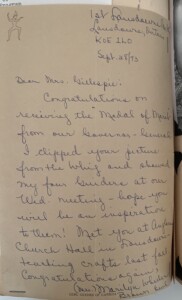 1st Lansdowne
Lansdowne,
K0E 1L0
Sept. 28/73
Dear Mrs. Gillespie:
Congratulations on
receiving the "Medal of
from our Governor-General
I clipped your picture
from the Whig and showed
my four leaders at our
Wed. meeting - hope you
will be an inspiration
to them! Met you at
Church Hall in Lansdowne
teaching crafts last fall
Congratulations again!
(Mrs.) Marilyn
Brown